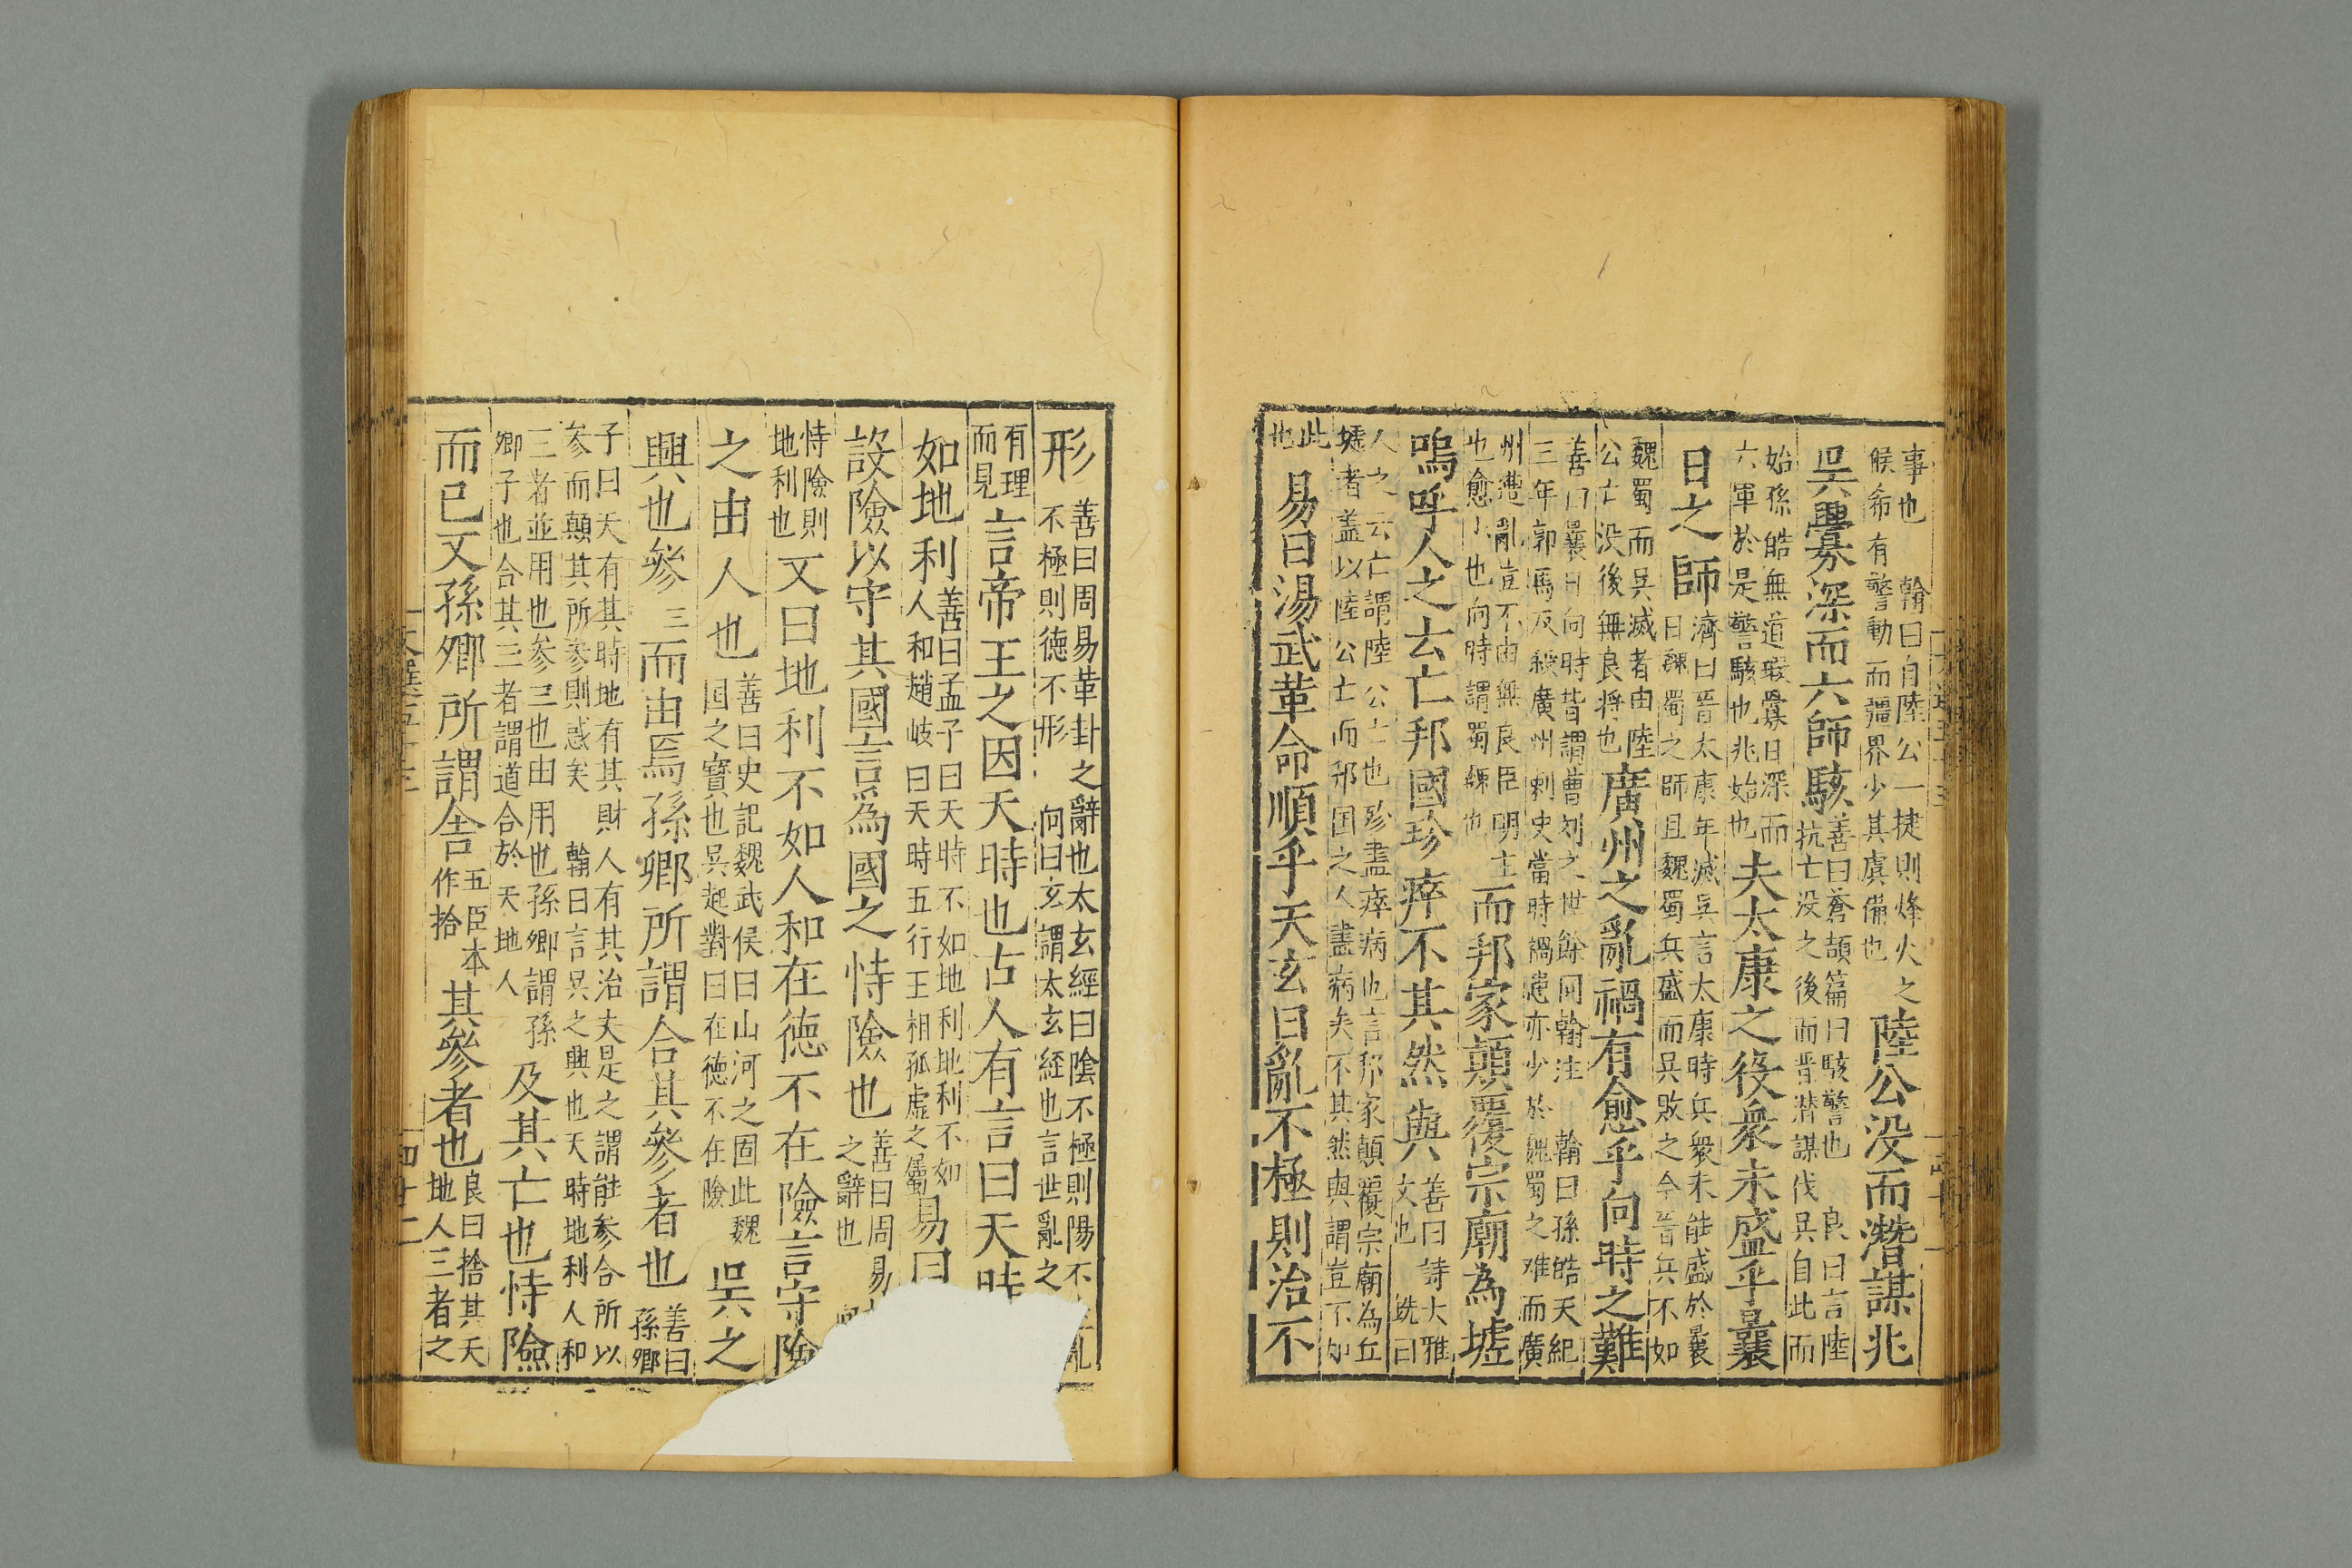 事也　翰曰自陸公一捷則烽火之
候希有警動而疆界少其虞備也
陸公没而潛謀兆
吳舋深而六師駭
善曰蒼頡篇曰駭警也　良曰言陸
抗亡没之後而晋潜謀伐吳自此而
始孫皓無道瑕舋日深而
六軍於是警駭也兆始也
夫太康之役衆未盛乎曩
日之師
濟曰晋太康年滅吳言太康時兵衆未能盛於曩
日魏蜀之師且魏蜀兵盛而吳敗之今晋兵不如
魏蜀而吳滅者由陸
公亡没後無良将也
廣州之亂禍有愈乎向時之難
善曰曩日向時皆謂曹刘之世餘同翰注　翰曰孫皓天紀
三年郭馬反殺廣州刺史當時禍患亦少於魏蜀之难而廣
州遭亂豈不由無良臣明主
也愈小也向時謂蜀魏也
而邦家顛覆宗廟為墟
嗚呼人之云亡邦國殄瘁不其然與
善曰詩大雅
文也　銑曰
人之云亡謂陸公亡也殄盡瘁病也言邦家顛覆宗廟為丘
墟者盖以陸公亡而邦国之人盡病矣不其然與謂豈不如
此
也
易曰湯武革命順乎天玄曰亂不極則治不
形
善曰周易革卦之辭也太玄經曰陰不極則陽不生亂
不極則德不形　向曰玄謂太玄経也言世亂之
有理
而見
言帝王之因天時也古人有言曰天時
如地利
善曰孟子曰天時不如地利地利不如
人和趙岐曰天時五行王相孤虛之屬
易曰
設險以守其國言為國之恃險也
善曰周易
之辭也
恃險則
地利也
又曰地利不如人和在德不在險言守險
之由人也
善曰史記魏武侯曰山河之固此魏
国之寶也吳起對曰在德不在險
吳之
興也參三而由焉孫卿所謂合其參者也
善曰
孫卿
子曰天有其時地有其財人有其治夫是之謂能參合所以
参而顛其所參則惑矣　翰曰言吳之興也天時地利人和
三者並用也参三也由用也孫卿謂孫
卿子也合其三者謂道合於天地人
及其亡也恃險
而已又孫卿所謂舍
五臣本
作捨
其參者也
良曰捨其天
地人三者之
文選五十三
四十二